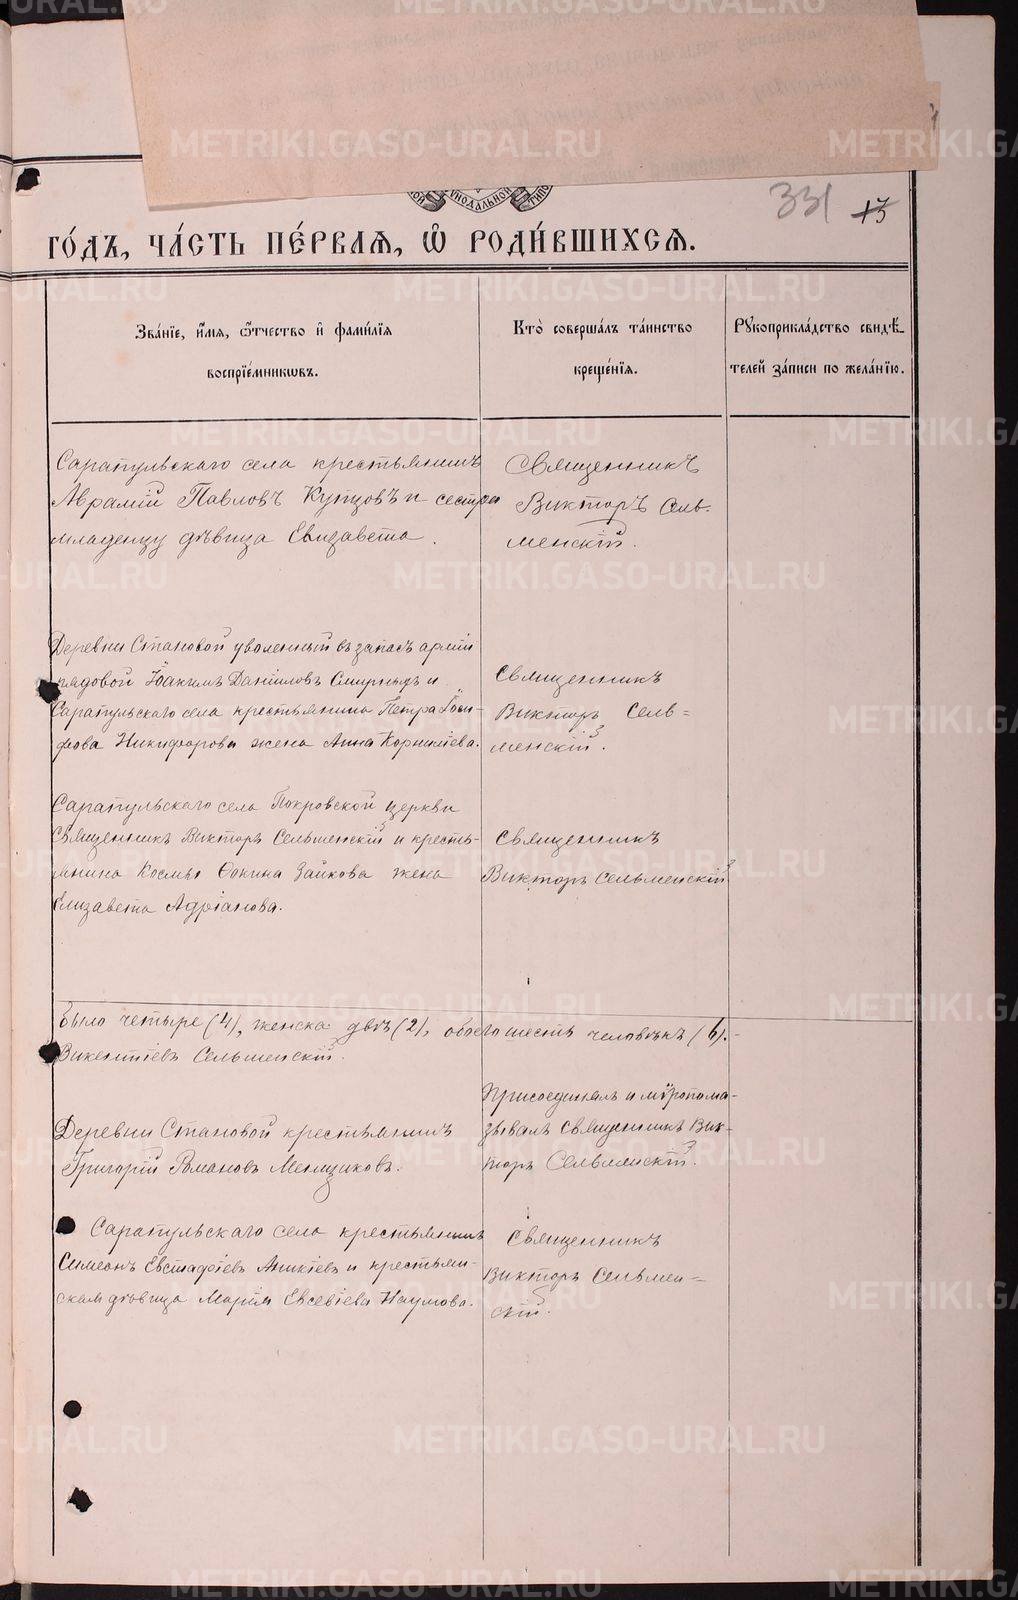 METRIKI.GASO-URAL.RU
331 13
инодальной типо
го́дъ, ча́сть пе́рваѧ, ѡ҆ роди́вшихсѧ.
Зва́нїе, и҆́мѧ, ѻ҆́тчество и҆ фами́лїѧ
воспрїе́мникѡвъ.
Кто̀ соверша́лъ та́инство
креще́нїѧ.
Рꙋкоприкла́дство свидѣ́-
телей за́писи по жела́нїю.
Сарапульскаго села крестьянинъ
Аврамій Павловъ Купцовъ и сестра
младенцу дѣвица Елизавета.
Священникъ
Викторъ Сель-
менскій.
Деревни Становой уволенный въ запасъ арміи
рядовой Іоакимъ Даніиловъ Смирныхъ и
Сарапульскаго села крестьянина Петра
Никифорова жена Анна Корнилиева.
Священникъ
Викторъ Сель=
менскій.
Сарапульскаго села Покровской церкви
Священникъ Викторъ Сельменскій и кресть-
янина Космы Ѳокина Зайкова жена
Елизавета Адріанова.
Священникъ
Викторъ Сельменскій
было четыре (4), женска двѣ (2), обоего шесть человѣкъ (6).-
Викентіевъ Сельменскій.
Деревни Становой крестьянинъ
Григорій Романовъ Меньщиковъ.
Присоединялъ и мѵропома-
зывалъ священникъ Вик-
торъ Сельменскій.
Сарапульскаго села крестьянинъ
Симеонъ Евстафіевъ Аникіевъ и крестьян-
ская дѣвица Марія Евсевіева Наумова.
Священникъ
Викторъ Сельмен=
скій.